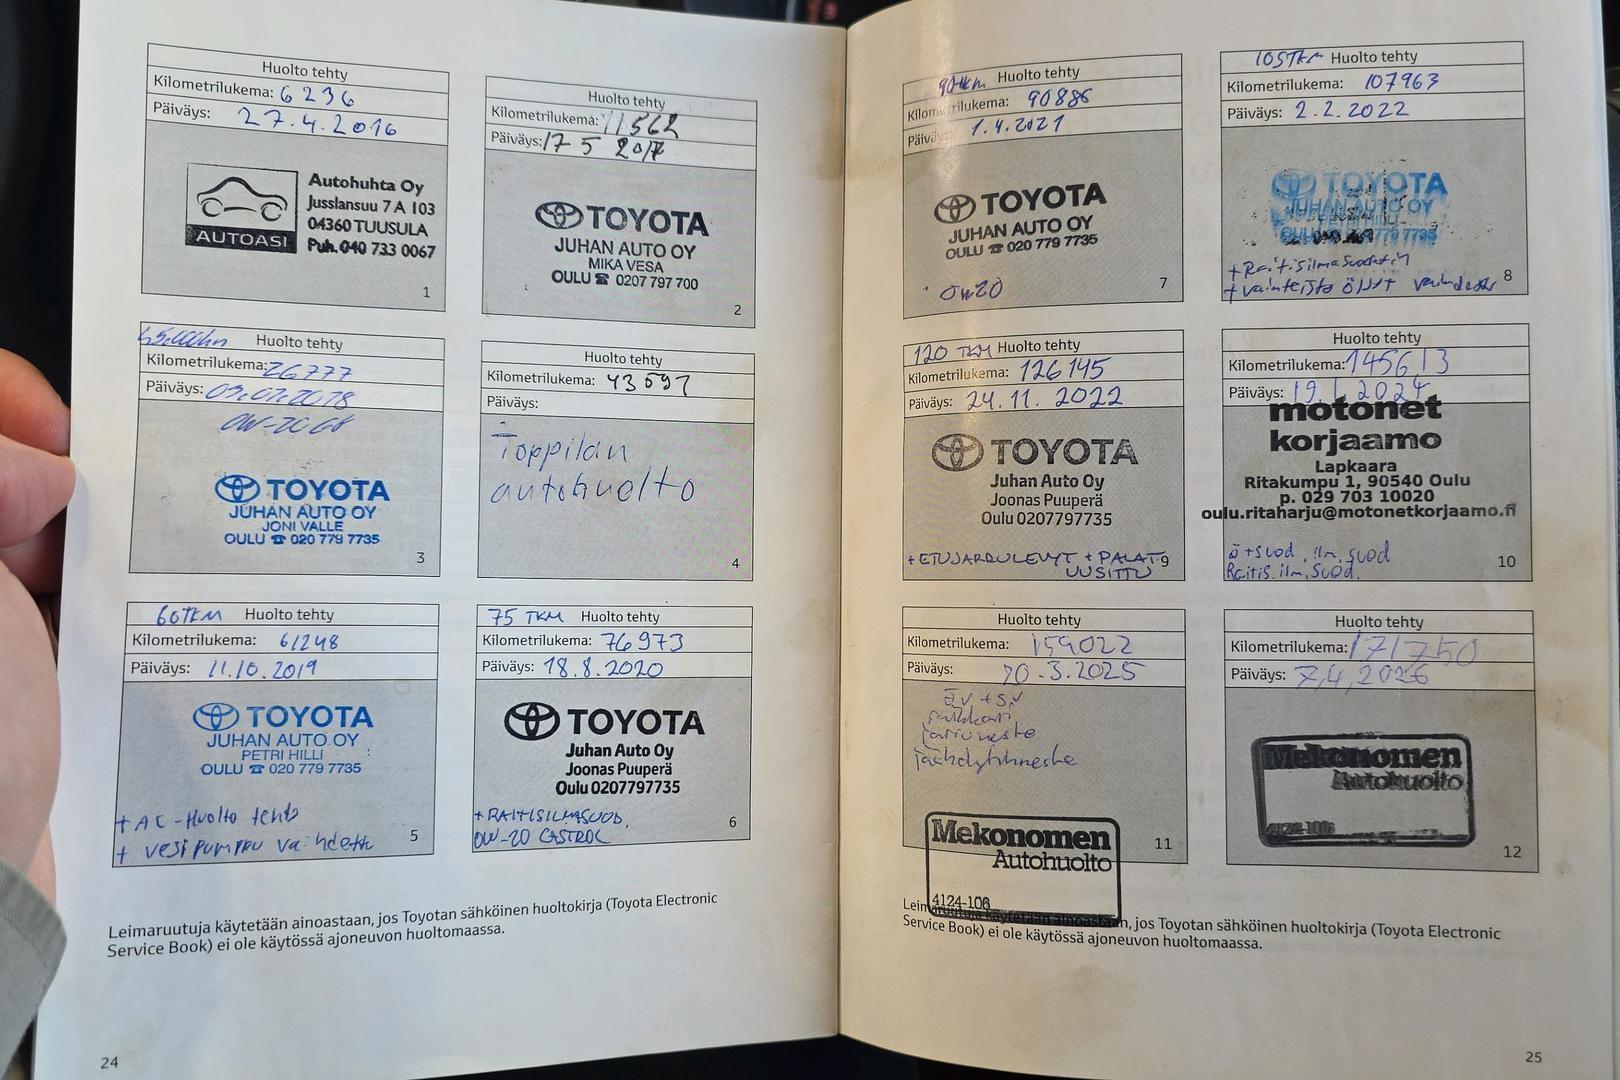 Huolto tehty
Kilometrilukema: 6236
Päiväys: 27.4.2016
AUTOASI
Autohuhta Oy
Jusslansuu 7 A 103
04360 TUUSULA
Puh. 040 733 0067
1
Huolto tehty
Kilometrilukema: 11562
Päiväys: 17 5 2017
TOYOTA
JUHAN AUTO OY
MIKA VESA
OULU ☎ 0207 797 700
2
Huolto tehty
Kilometrilukema: 26777
Päiväys: 03.07.2018
TOYOTA
JUHAN AUTO OY
JONI VALLE
OULU ☎ 020 779 7735
3
Huolto tehty
Kilometrilukema: 43597
Päiväys:
Toppilan
autohuolto
4
60TKM Huolto tehty
Kilometrilukema: 61248
Päiväys: 11.10.2019
TOYOTA
JUHAN AUTO OY
PETRI HILLI
OULU ☎ 020 779 7735
+ AC-Huolto tehty
+ vesipumppu vaihdettu
5
75 TKM Huolto tehty
Kilometrilukema: 76973
Päiväys: 18.8.2020
TOYOTA
Juhan Auto Oy
Joonas Puuperä
Oulu 0207797735
+RAITISILMASUOD.
0W-20 CASTROL
6
Leimaruutuja käytetään ainoastaan, jos Toyotan sähköinen huoltokirja (Toyota Electronic
Service Book) ei ole käytössä ajoneuvon huoltomaassa.
24
90tkm Huolto tehty
Kilometrilukema: 90886
Päiväys: 1.4.2021
TOYOTA
JUHAN AUTO OY
OULU ☎ 020 779 7735
0w20
7
105TKM Huolto tehty
Kilometrilukema: 107963
Päiväys: 2.2.2022
TOYOTA
JUHAN AUTO OY
OULU ☎ 020 779 7735
+Raitisilmasuodatin
+vainteisto öljyt vaihdettu
8
120 TKM Huolto tehty
Kilometrilukema: 126145
Päiväys: 24.11.2022
TOYOTA
Juhan Auto Oy
Joonas Puuperä
Oulu 0207797735
+ETUJARRULEVYT + PALAT
UUSITTU
9
Huolto tehty
Kilometrilukema: 145613
Päiväys: 19.1.2024
motonet
korjaamo
Lapkaara
Ritakumpu 1, 90540 Oulu
p. 029 703 10020
oulu.ritaharju@motonetkorjaamo.fi
ö+suod, ilm.suod
Raitis.ilm.suod.
10
Huolto tehty
Kilometrilukema: 159022
Päiväys: 20.3.2025
jarruneste
jäähdytinneste
Mekonomen
Autohuolto
4124-106
11
Huolto tehty
Kilometrilukema: 171750
Päiväys: 7.4.2026
Mekonomen
Autohuolto
4124-106
12
Leimaruutuja käytetään ainoastaan, jos Toyotan sähköinen huoltokirja (Toyota Electronic
Service Book) ei ole käytössä ajoneuvon huoltomaassa.
25